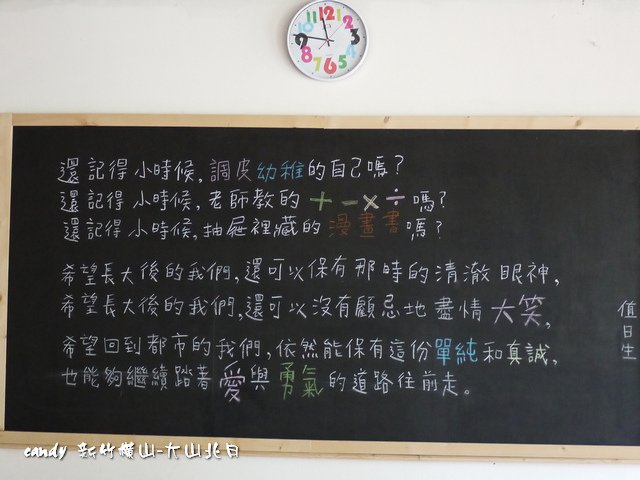 12
1
2
3
4
5
6
7
8
9
10
11
還記得小時候,調皮幼稚的自己嗎?
還記得小時候,老師教的+-×÷嗎?
還記得小時候,抽屜裡藏的漫畫書嗎?
希望長大後的我們,還可以保有那時的清澈眼神,
希望長大後的我們,還可以沒有顧忌地盡情大笑,
希望回到都市的我們,依然能保有這份單純和真誠,
也能夠繼續踏著愛與勇氣的道路往前走。
值日生
candy 新竹橫山-大山北月